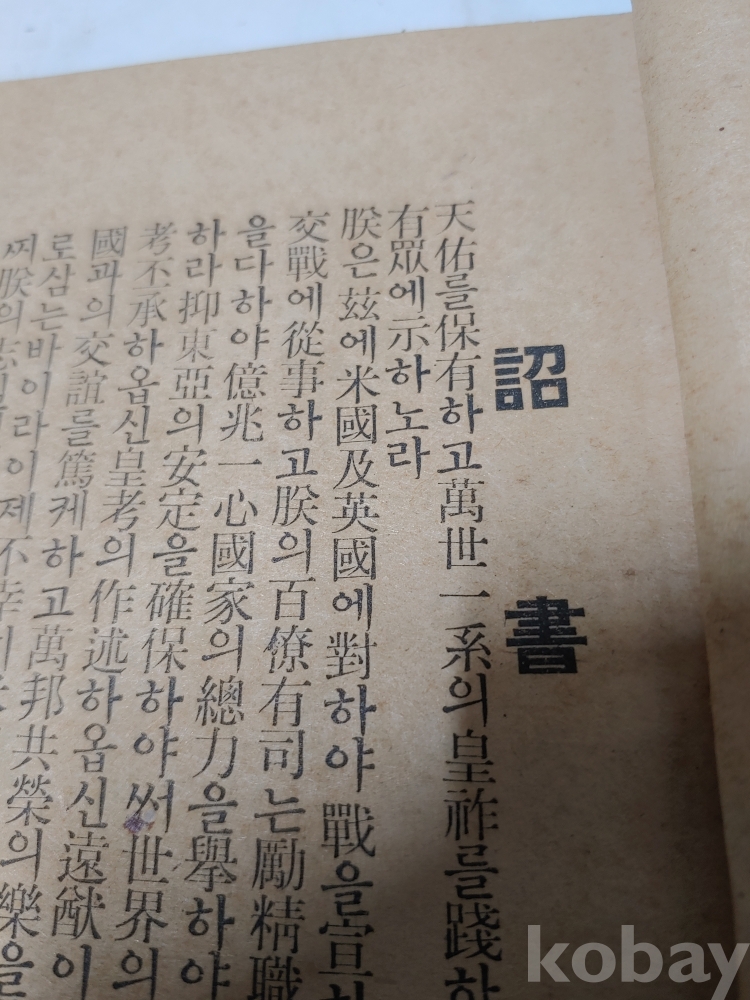 詔書
天佑를保有하고萬世一系의皇祚를踐하
有眾에示하노라
朕은玆에米國及英國에對하야戰을宣하
交戰에從事하고朕의百僚有司는勵精職
을다하야億兆一心國家의總力을擧하야
하라抑東亞의安定을確保하야써世界의
考丕承하옵신皇考의作述하옵신遠猷이
國과의交誼를篤케하고萬邦共榮의樂을
로삼는바이라이제不幸
씨朕의
kobay